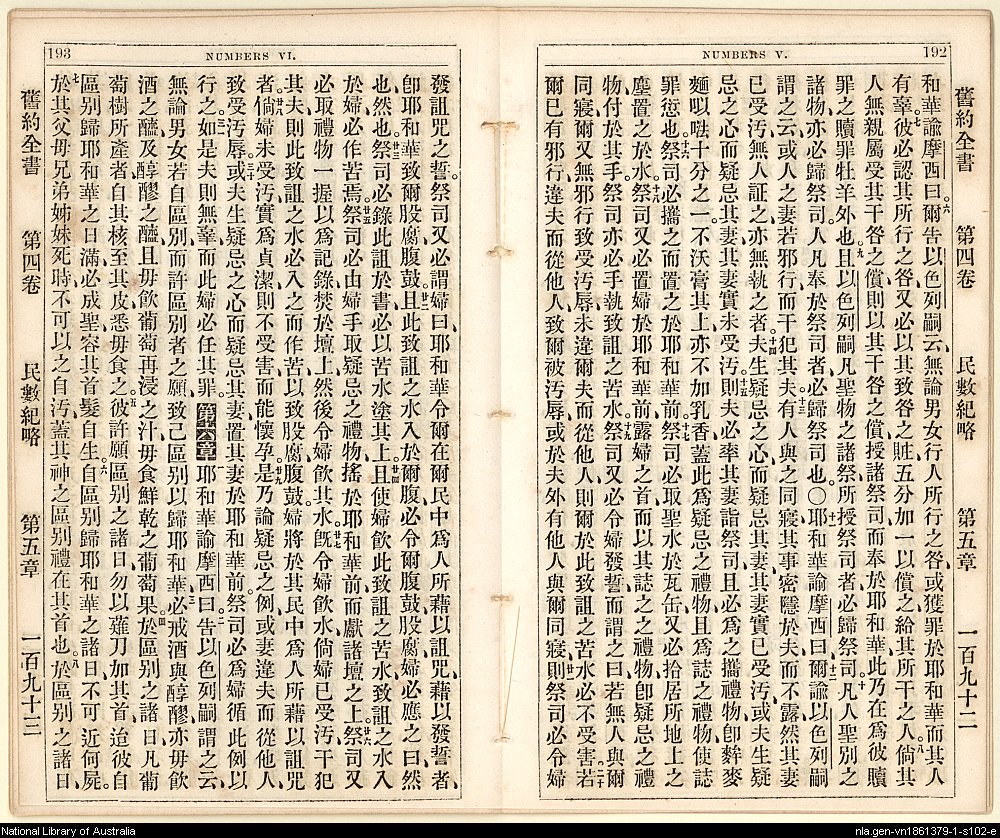 192
NUMBERS V.
舊約全書 第四卷 民數紀略 第五章 一百九十二
和華諭摩西曰爾告以色列嗣云無論男女行人所行之咎或獲罪於耶和華而其人
有辜彼必認其所行之咎又必以其致咎之賍五分加一以償之給其所干之人倘其
人無親屬受其干咎之償則以其干咎之償授諸祭司而奉於耶和華此乃在為彼贖
罪之贖罪牡羊外也且以色列嗣凡聖物之諸祭所授祭司者必歸祭司凡人聖別之
諸物亦必歸祭司人凡奉於祭司者必歸祭司也〇耶和華諭摩西曰爾諭以色列嗣
謂之云或人之妻若邪行而干犯其夫有人與之同寢其事密隱於夫而不露然其妻
已受汚無人証之亦無執之者夫生疑忌之心而疑忌其妻其妻實已受汚或夫生疑
忌之心而疑忌其妻其妻實未受汚則夫必率其妻詣祭司且必為之攜禮物卽麰麥
麵㕥㗖十分之一不沃膏其上亦不加乳香蓋此為疑忌之禮物且為誌之禮物使誌
罪愆也祭司必攜之而置之於耶和華前祭司必取聖水於瓦缶又必拾居所地上之
塵置之於水祭司又必置婦於耶和華前露婦之首而以其誌之之禮物卽疑忌之禮
物付於其手祭司亦必手執致詛之苦水祭司又必令婦發誓而謂之曰若無人與爾
同寢爾又無邪行致受汚辱未違爾夫而從他人則爾於此致詛之苦水必不受害若
爾已有邪行違夫而從他人致爾被汚辱或於夫外有他人與爾同寢則祭司必令婦
193
NUMBERS VI.
發詛咒之誓祭司又必謂婦曰耶和華令爾在爾民中為人所藉以詛咒藉以發誓者
卽耶和華致爾股腐腹鼓且此致詛之水入於爾腹必令爾腹鼓股腐婦必應之曰然
也然也祭司必錄此詛於書必以苦水塗其上且使婦飲此致詛之苦水致詛之水入
於婦必作苦焉祭司必由婦手取疑忌之禮物搖於耶和華前而獻諸壇之上祭司又
必取禮物一握以為記錄焚於壇上然後令婦飲其水旣令婦飲水倘婦已受汚干犯
其夫則此致詛之水必入之而作苦以致股腐腹鼓婦將於其民中為人所藉以詛咒
者倘婦未受汚實為貞潔則不受害而能懷孕是乃論疑忌之例或妻違夫而從他人
致受汚辱或夫生疑忌之心而疑忌其妻置其妻於耶和華前祭司必為婦循此例以
行之如是夫則無辜而此婦必任其罪第六章耶和華諭摩西曰告以色列嗣謂之云
無論男女若自區別而許區別者之願致己區別以歸耶和華必戒酒與醇醪亦毋飲
酒之醯及醇醪之醯且毋飲葡萄再浸之汁毋食鮮乾之葡萄果於區別之諸日凡葡
萄樹所產者自其核至其皮悉毋食之彼許願區別之諸日勿以薙刀加其首迨彼自
區別歸耶和華之日滿必成聖容其首髮自生自區別歸耶和華之諸日不可近何屍
於其父母兄弟姊妹死時不可以之自汚蓋其神之區別禮在其首也於區別之諸日
舊約全書 第四卷 民數紀略 第五章 一百九十三
National Library of Australia
nla.gen-vn1861379-1-s102-e